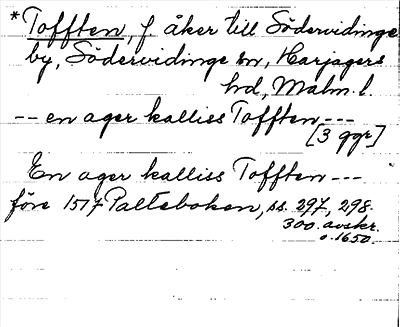 *Tofften, f åker till Södervidinge
by, Södervidinge sn, Harjagers
hd, Malm. l.
-- en ager kalliss Tofften ---
[3 ggr]
En ager kalliss Tofften ---
före 1517 Palteboken, ss. 297, 298.
300. avskr.
o. 1650.